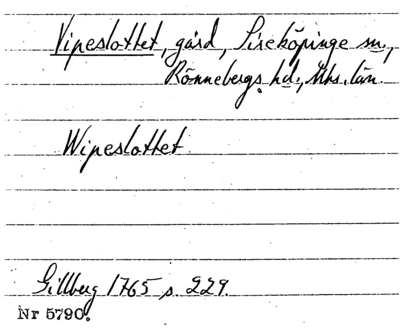 Vipeslottet, gård, Sireköpinge sn.,
Rönnebergs hd., Mhs. län.
Wipeslottet
Gillberg 1765 s. 229.
Nr 5790.